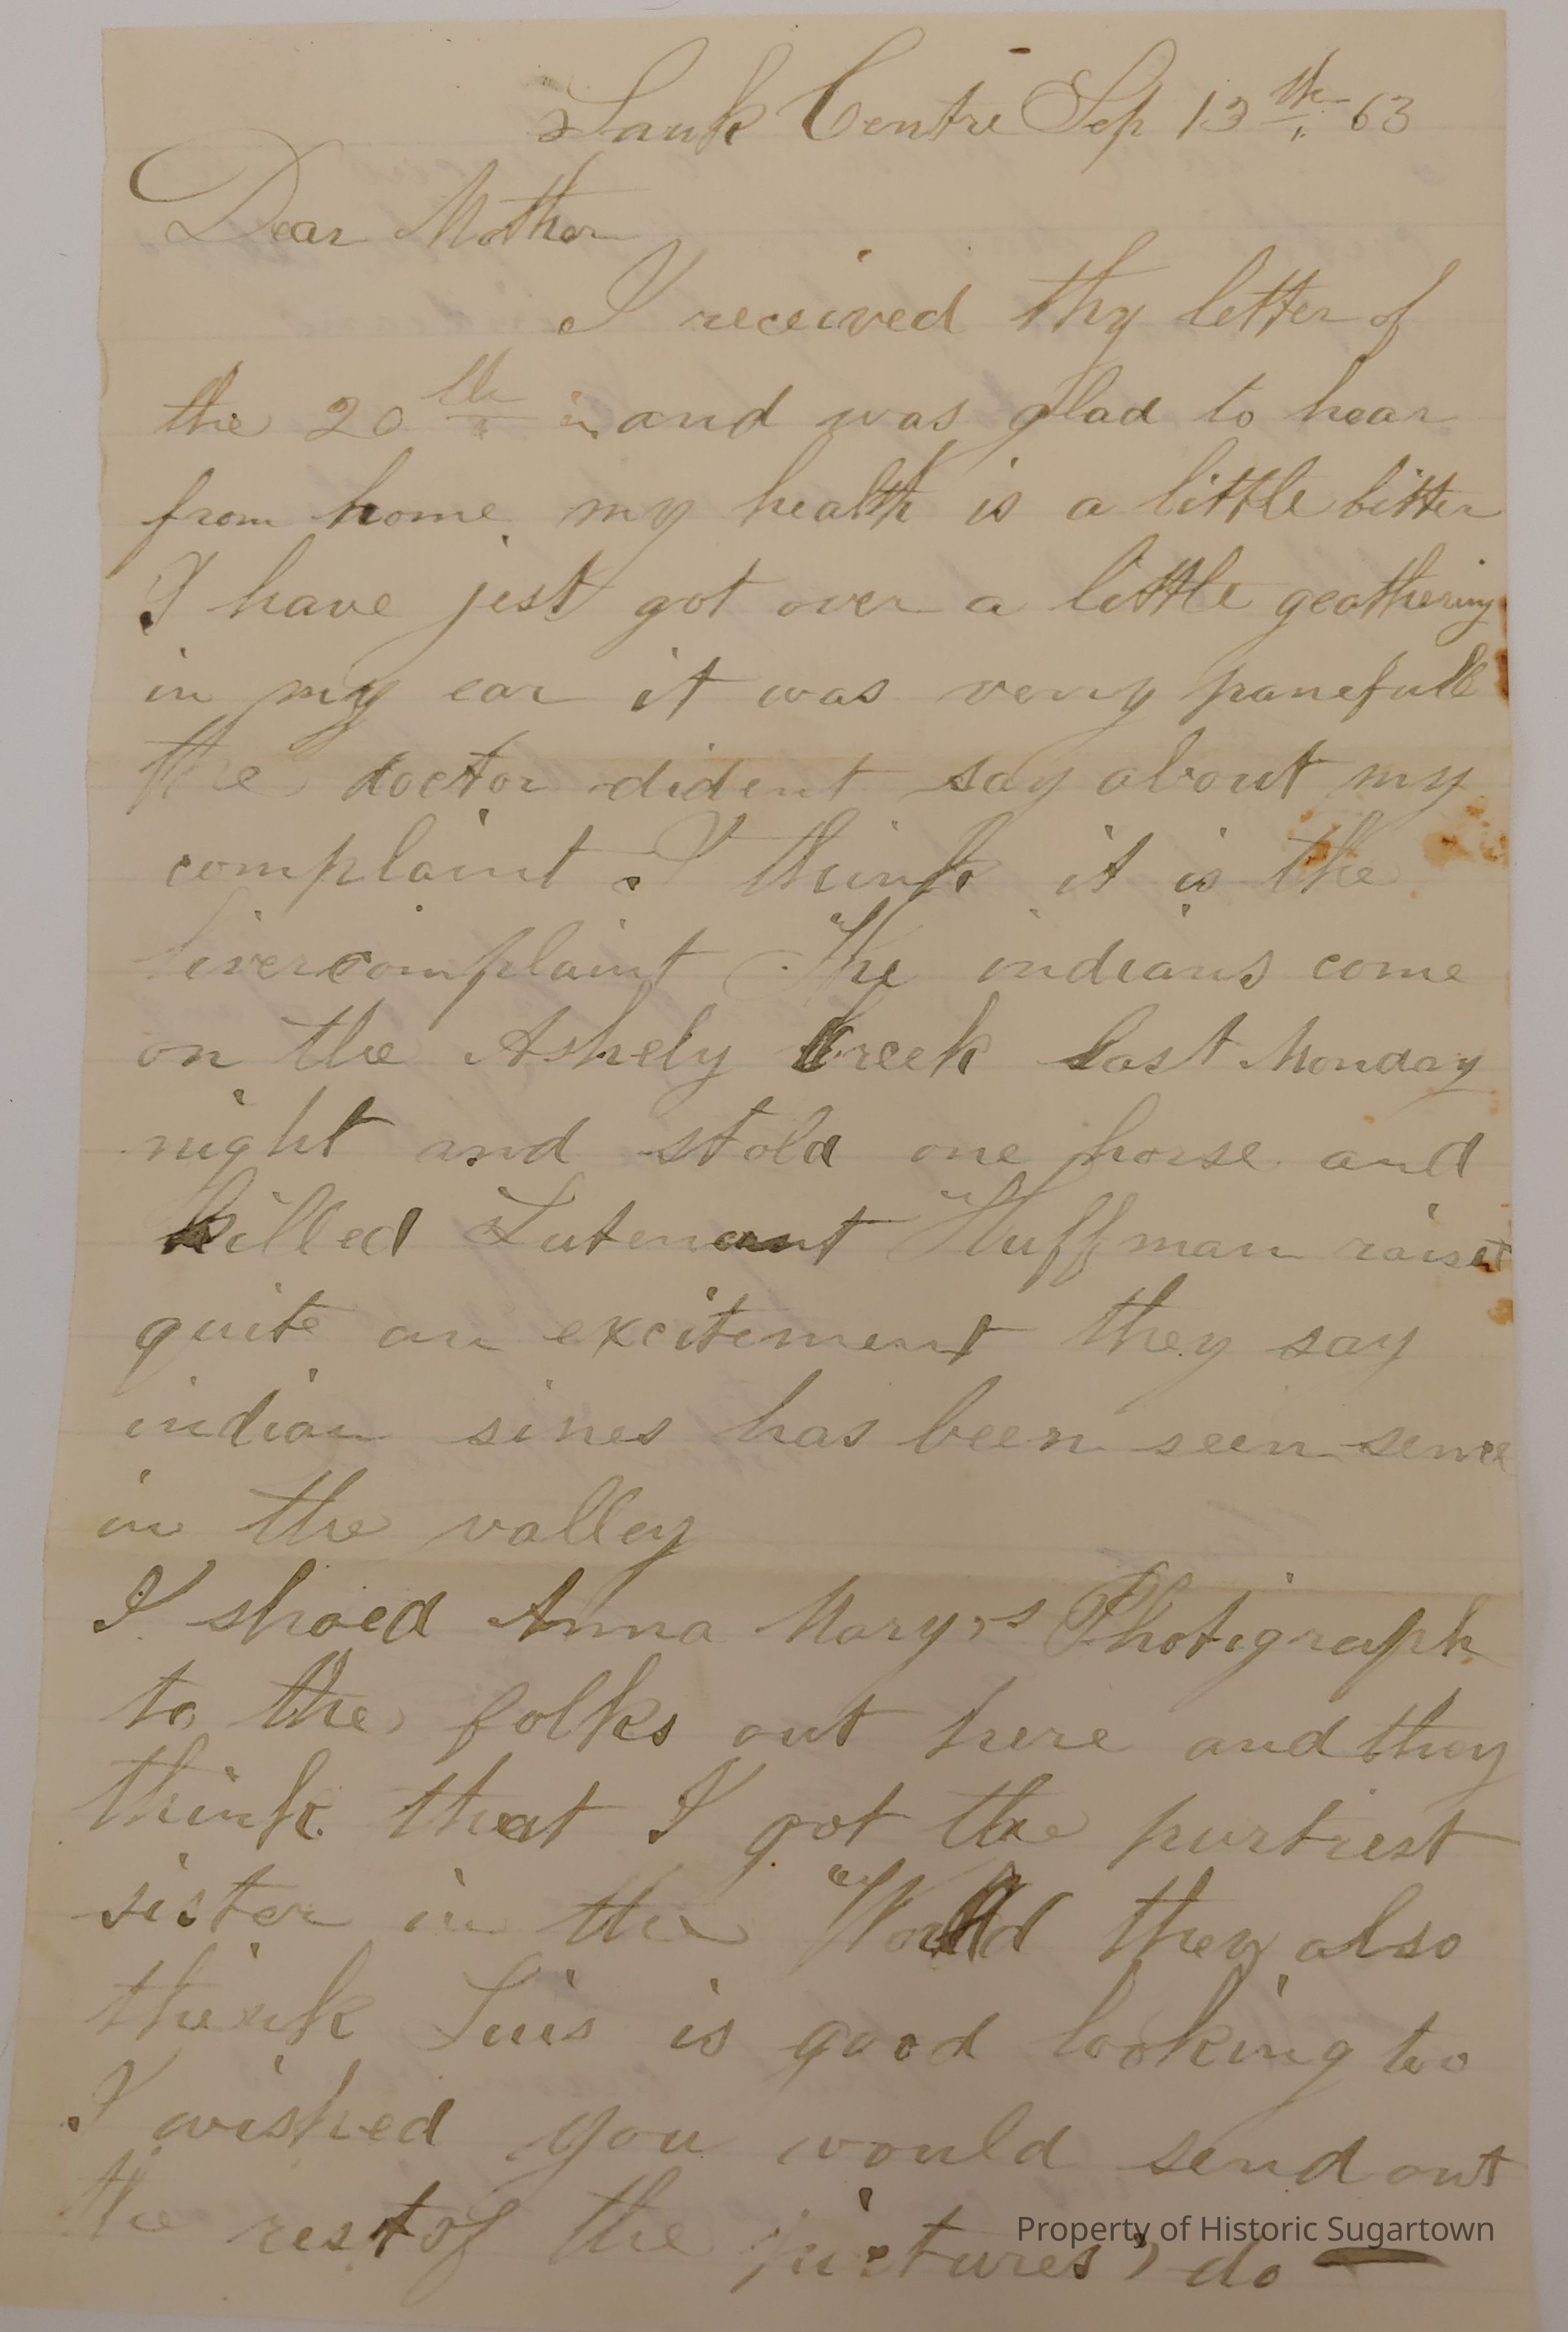 Sauk Centre Sep 13th 63
Dear Mother
I received thy letter of
the 20th in and was glad to hear
from home my health is a little bitter
I have jest got over a little geathering
in my ear it was verry panefull
the doctor dident say about my
complaint I think it is the
livercomplaint The indians come
on the Ashely Creek last Monday
night and stold one horse and
killed Lutenant Huffman raiset
quite an excitement they say
indian sines has been seen sence
in the valley
I shoed Anna Mary,s Photigraph
to the folks out here and they
think that I got the purtiest
sister in the World they also
think is good looking too
I wished you would send out
the rest of the pictures, do —
Property of Historic Sugartown